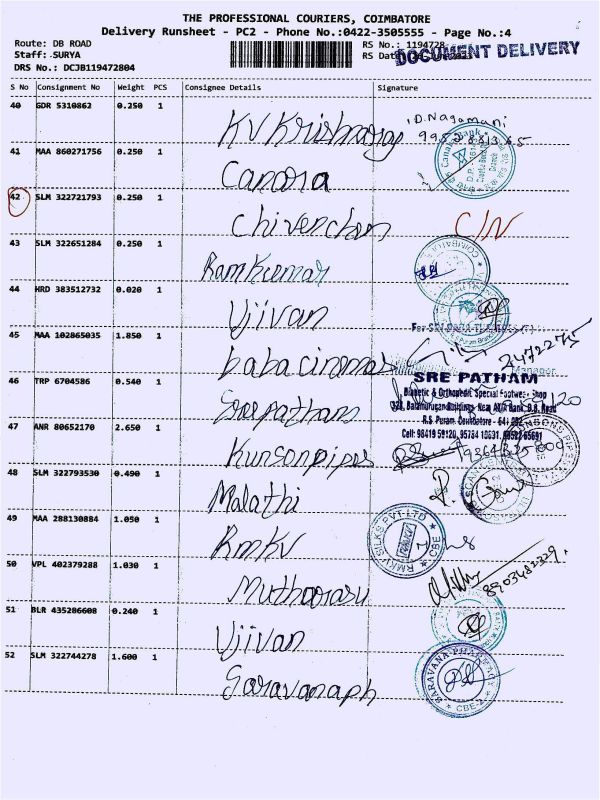 THE PROFESSIONAL COURIERS, COIMBATORE
Delivery Runsheet - PC2 - Phone No.:0422-3505555 - Page No.:4
Route: DB ROAD
RS No.: 1194728
Staff: SURYA
RS Date
DOCUMENT DELIVERY
DRS No.: DCJB119472804
S No Consignment No Weight PCS Consignee Details Signature
40 GDR 5310862 0.250 1 KV Krishnaraj
I.D. Nagamani
41 MAA 860271756 0.250 1 Canara
Canara Bank
42 SLM 322721793 0.250 1 Chivenchan C/N
43 SLM 322651284 0.250 1 Ramkumar
44 HRD 383512732 0.020 1 Ujivan
45 MAA 102865035 1.850 1 babacinemas
2472275
Manager
46 TRP 6704586 0.540 1 Sreepatham
SRE PATHAM
Diabetic & Orthopedic Special Footwear Shop
R.S. Puram, Coimbatore - 641 002
47 ANR 80652170 2.650 1 Kunsonpipes
48 SLM 322793530 0.490 1 Malathi
49 MAA 288130884 1.050 1 Rmkv
RMKV SILKS PVT LTD
CBE
50 VPL 402379288 1.030 1 Mutharasu
8903482329
51 BLR 435286608 0.240 1 Ujivan
52 SLM 322744278 1.600 1 Saravanaph
SARAVANA PHARMACY
CBE-2